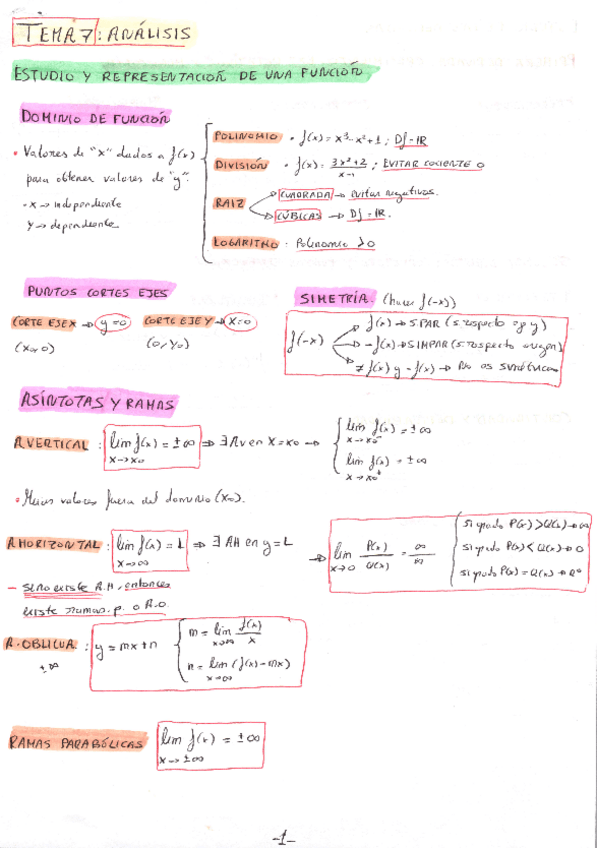 TEMA 7: ANÁLISIS
ESTUDIO Y REPRESENTACIÓN DE UNA FUNCIÓN
DOMINIO DE FUNCIÓN
• Valores de "x" dados a f(x)
para obtener valores de "y".
- x → independiente
y → dependiente
POLINOMIO • f(x) = x³ - x² + 1 ; Df = IR
DIVISIÓN • f(x) = 3x²+2 / x-1 ; EVITAR COCIENTE 0
RAIZ
CUADRADA → evitar negativos.
CÚBICAS → Df = IR.
LOGARITMO : Polinomio > 0
PUNTOS CORTES EJES
CORTE EJE X → y=0 CORTE EJE Y → x=0
(x₀, 0) (0, y₀)
SIMETRÍA. (hacer f(-x))
f(-x)
f(x) → SPAR (s. respecto eje y)
-f(x) → SIMPAR (s. respecto origen)
≠ f(x) y -f(x) → No es simétrica
ASÍNTOTAS Y RAMAS
A.VERTICAL : lim f(x) = ± ∞ ⇒ ∃ Av en x = x₀ →
x → x₀
lim f(x) = ± ∞
x → x₀⁻
lim f(x) = ± ∞
x → x₀⁺
• valores fuera del dominio (x₀).
A HORIZONTAL : lim f(x) = L ⇒ ∃ AH en y = L
x → ∞
→ lim P(x)/Q(x) = ∞/∞
x → 0
si grado P(x) > Q(x) → ∞
si grado P(x) < Q(x) → 0
si grado P(x) = Q(x) →
- si no existe A.H, entonces
existe ramas. p. o A.O.
A. OBLICUA : y = mx + n
± ∞
m = lim f(x)/x
x → ∞
n = lim (f(x) - mx)
x → ∞
RAMAS PARABÓLICAS lim f(x) = ± ∞
x → ± ∞
-1-